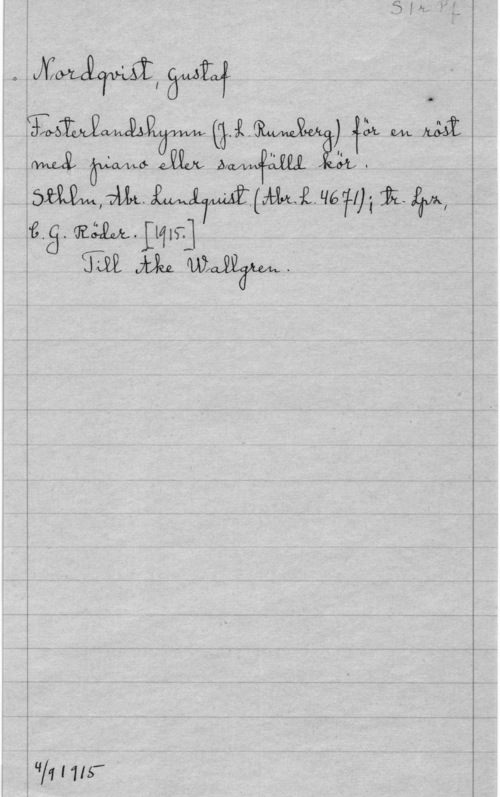 S 1 r Pf
Nordqvist, Gustaf
Fosterlandshymn (J. L. Runeberg) för en röst
med piano eller samfälld kör.
Sthlm, Abr. Lundquist (Abr. L. 4671); tr. Lpz,
C. G. Röder. [1915.]
Till Åke Wallgren.
4/9 1915